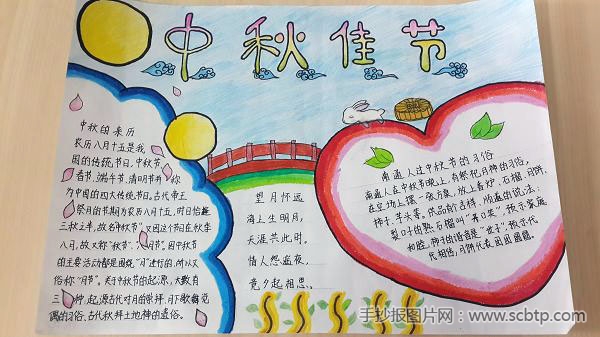 中秋佳节
中秋的来历
农历八月十五是我
国的传统节日,中秋节
春节、端午节、清明节并称
为中国的四大传统节日。古代帝王
祭月的节期为农历八月十五,时日恰逢
三秋之半,故名"中秋节";又因这个节日在秋季
八月,故又称"秋节"、
的主要活动都是围绕"月"进行的,所以又
俗称"月节"。关于中秋节的起源,大致有
三种:起源古代对月的崇拜、月下歌舞觅
偶的习俗、古代秋拜土地神的遗俗。
望月怀远
海上生明月,
天涯共此时。
情人怨遥夜,
竟夕起相思。
南通人过中秋节的习俗
南通人在中秋节晚上,有祭祀月神的习俗,
在空场上摆一张方桌,放上香炉、石榴、月饼、
柿子、芋头等。供品的吉祥,
裂口的熟石榴叫"笑口类",预示家庭
和睦,柿子的谐音是"世子",预示代
代相传,月饼代表团团圆圆。
手抄报图片网:www.scbtp.com